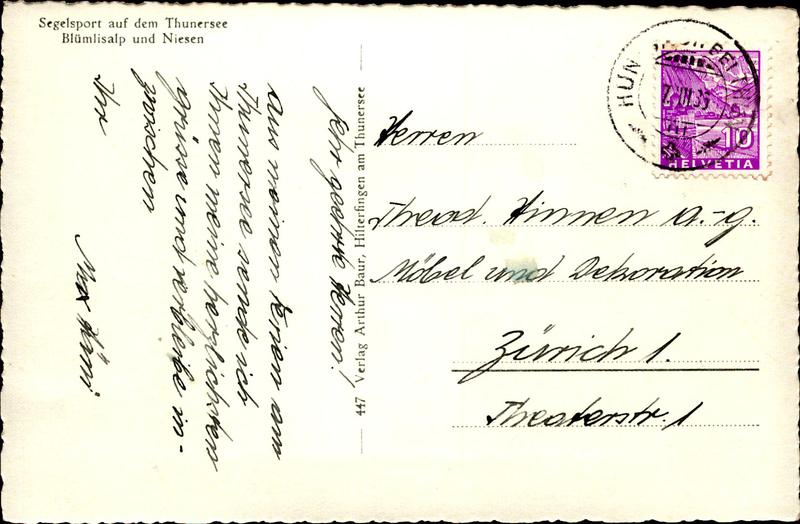 Segelsport auf dem Thunersee
Blümlisalp und Niesen
Sehr geehrte Herren!
Aus meinen Ferien am
Thunersee sende ich
Ihnen meine herzlichsten
Grüsse und verbleibe in-
zwischen
Ihr
Max
447 Verlag Arthur Baur, Hilterfingen am Thunersee
HELVETIA
10
Herren
Theod. Hinnen A.-G.
Möbel und Dekoration
Zürich 1.
Theaterstr. 1